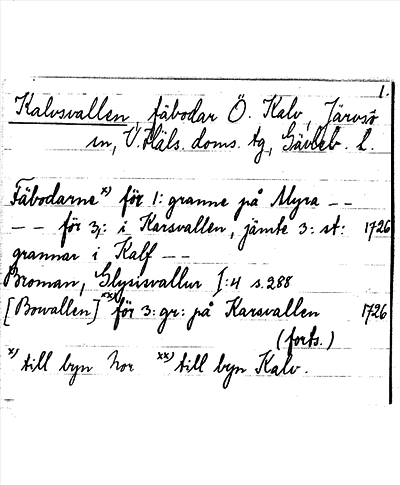 1.
Kalvsvallen, fäbodar Ö. Kalv, Järvsö
sn, V. Häls. doms. tg, Gävleb. l.
Fäbodarne x) för 1: granne på Myra --
-- för 3: i Karsvallen, jämte 3: st: 1726
grannar i Kalf --
Broman, Glysisvallur I:4 s. 288
[Bowallen] xx) för 3: gr: på Karsvallen 1726
(forts.)
x) till byn Nor xx) till byn Kalv.